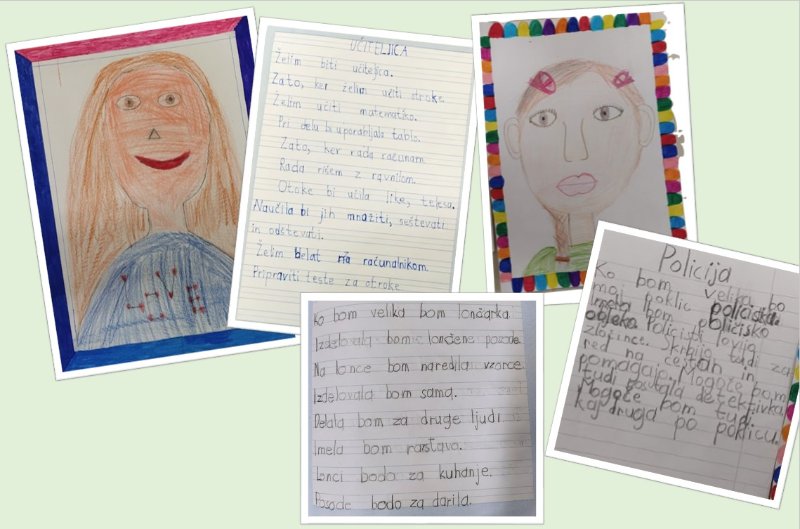 LOVE
UČITELJICA
Želim biti učiteljica.
Zato, ker želim učiti otroke.
Želim učiti matematiko.
Pri delu bi uporabljala tablo.
Zato, ker rada računam.
Rada rišem z ravnilom.
Otoke bi učila like, telesa.
Naučila bi jih množiti, seštevati
in odštevati.
Želim delat na računalnikom.
Pripraviti teste za otroke
Ko bom velika bom lončarka
Izdelovala bom lončene posode
Na lonce bom naredila vzorce
Izdelovala bom sama.
Delala bom za druge ljudi
Imela bom razstavo.
Lonci bodo za kuhanje.
Posode bodo za darila.
Policija
Ko bom velika bo
moj poklic policistka.
Imela bom policisko
obleko Policisti lovijo
zločince. Skrbijo tudi za
red na cestah in
pomagajo. Mogoče bom
tudi postala detektivka
Mogoče bom tudi
kaj druga po poklicu.